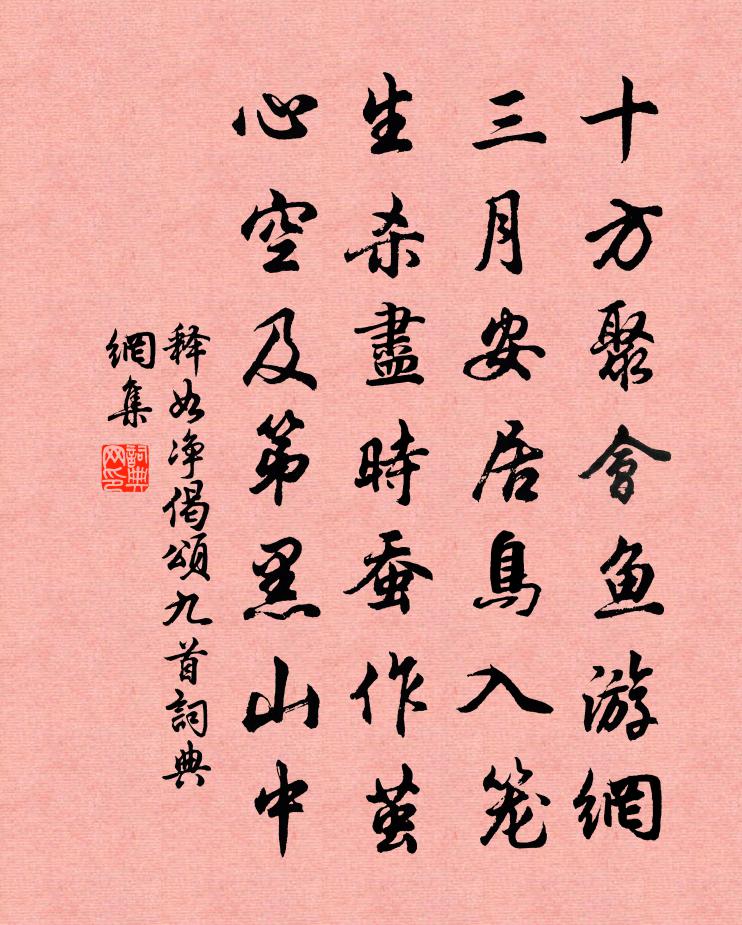 十方聚會鱼游網
三月安居鳥入笼
生杀盡時蚕作茧
心空及第黑山中
释如净偈頌九首詞典
網集
詞典网印